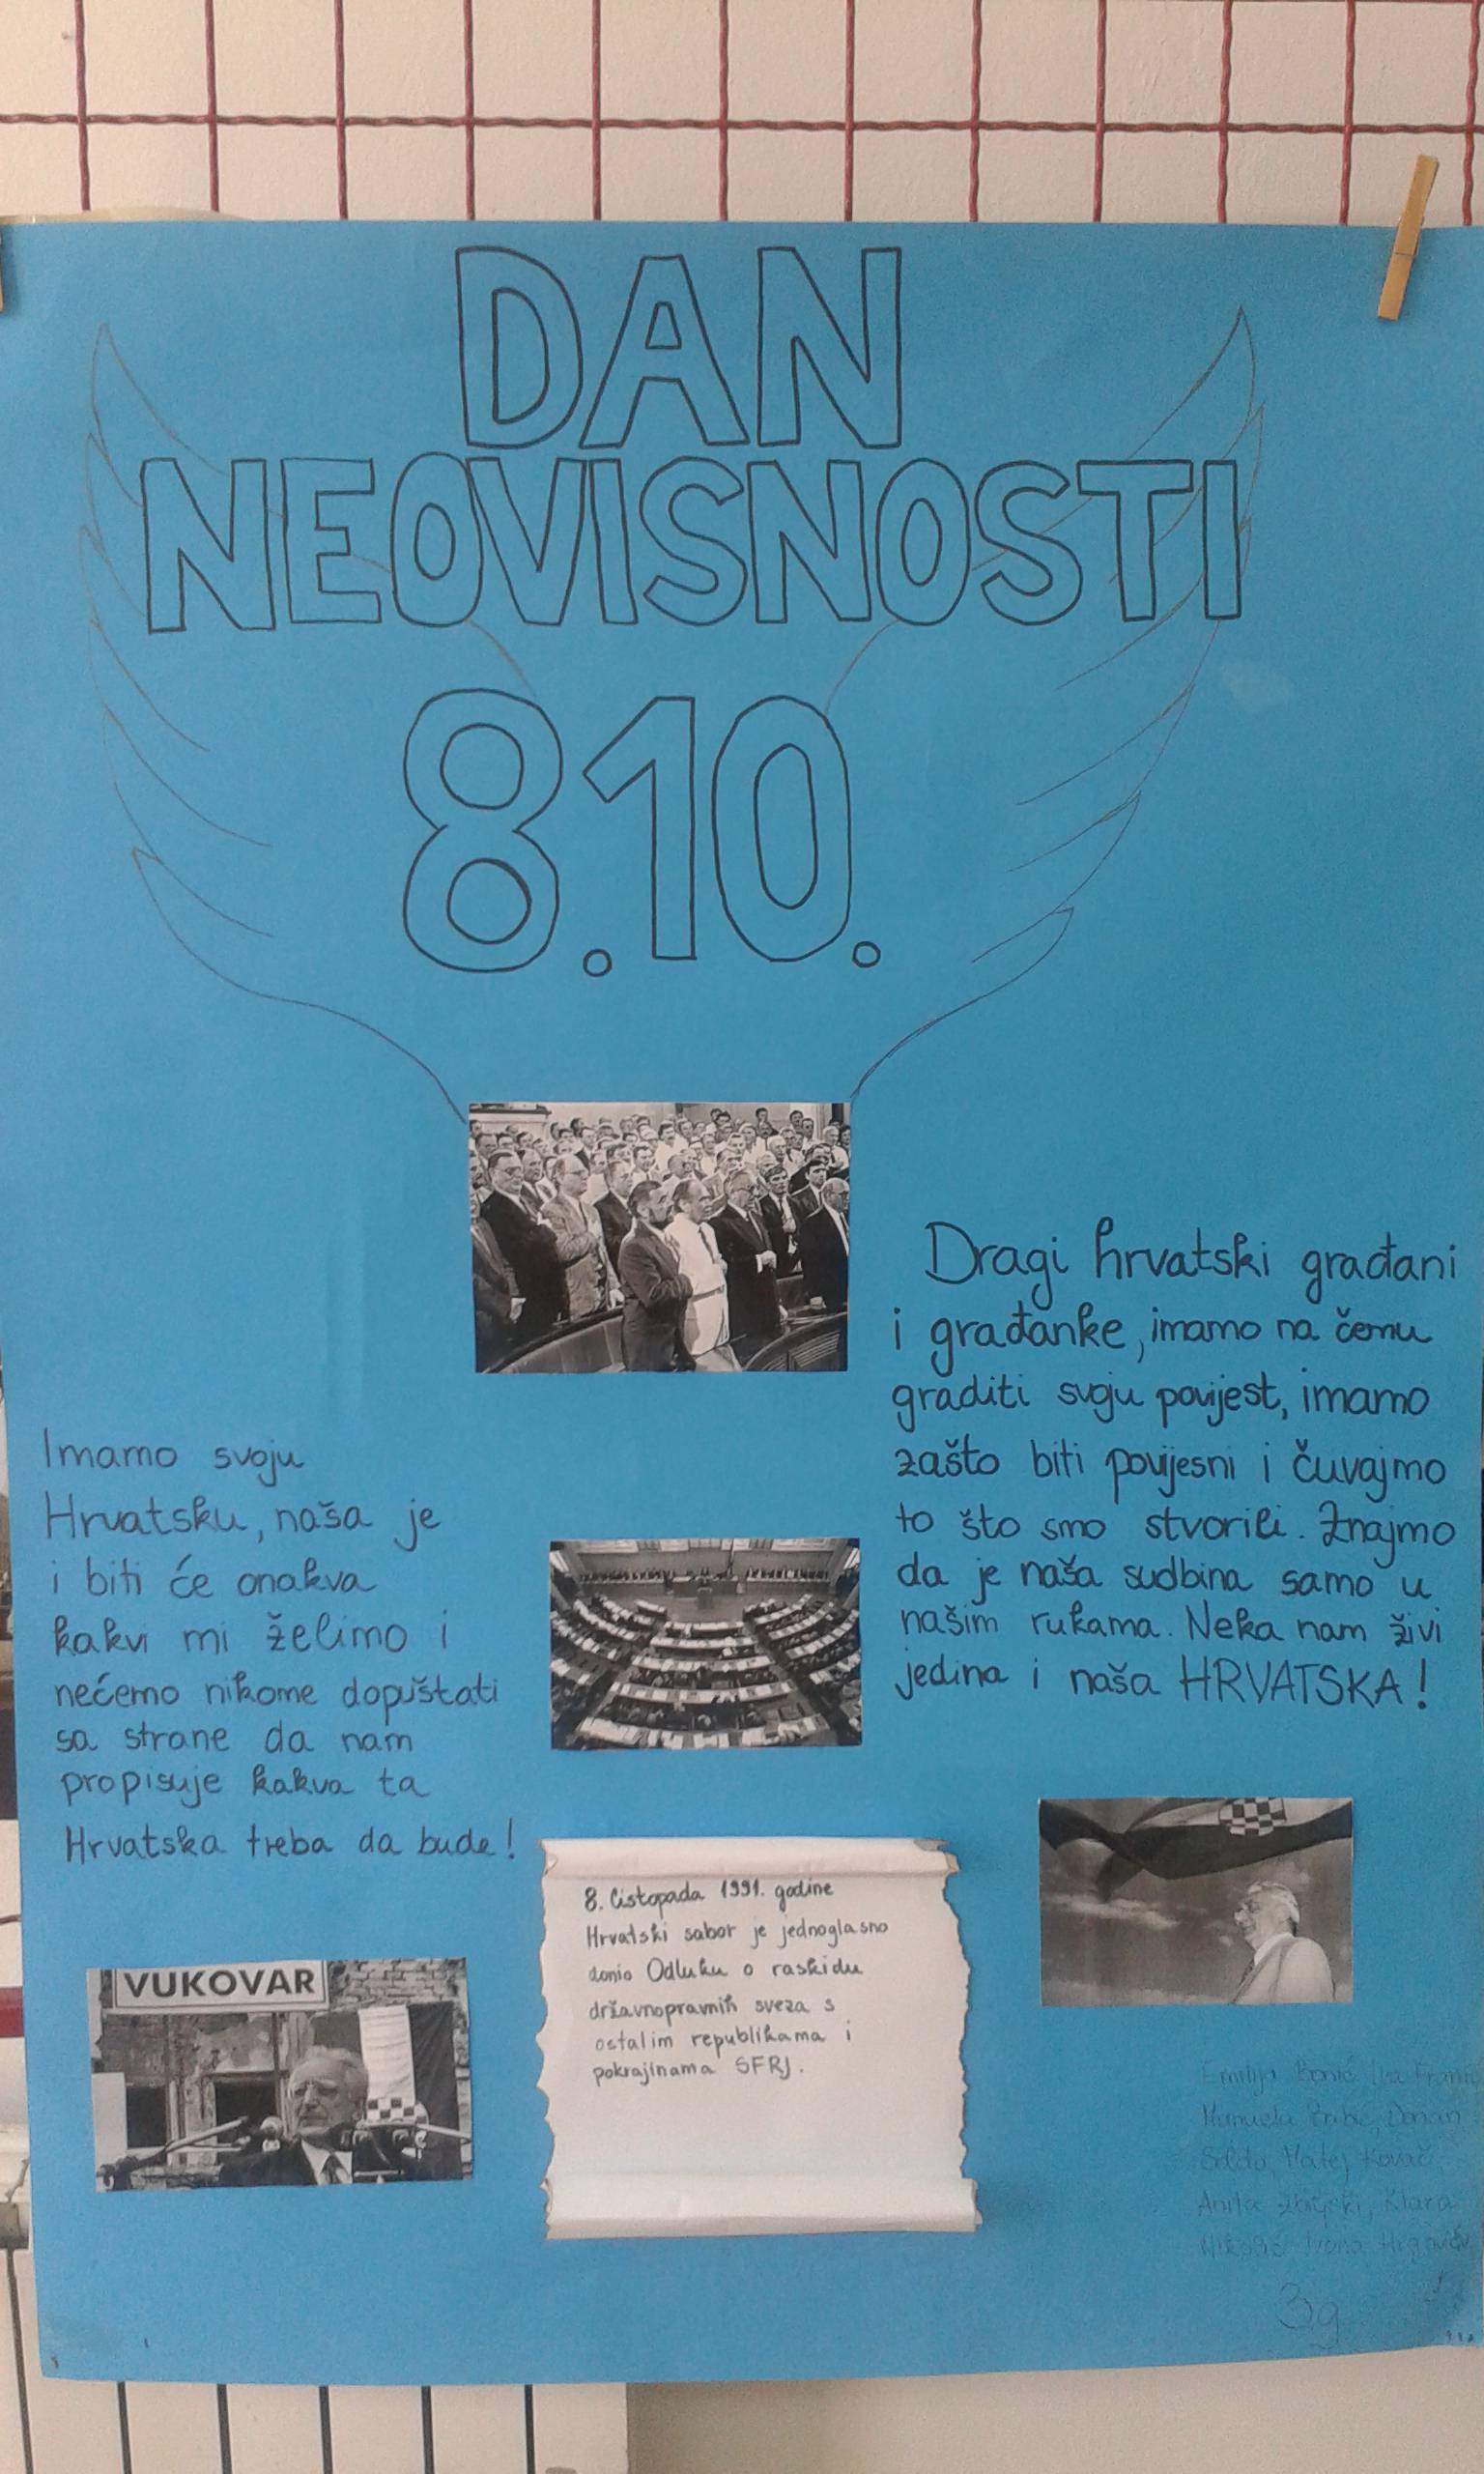 DAN
NEOVISNOSTI
8.10.
Dragi hrvatski građani
i građanke, imamo na čemu
graditi svoju povijest, imamo
zašto biti povijesni i čuvajmo
to što smo stvorili. Znajmo
da je naša sudbina samo u
našim rukama. Neka nam živi
jedina i naša HRVATSKA!
Imamo svoju
Hrvatsku, naša je
i biti će onakva
kakvi mi želimo i
nećemo nikome dopuštati
sa strane da nam
propisuje kakva ta
Hrvatska treba da bude!
VUKOVAR
8. listopada 1991. godine
Hrvatski sabor je jednoglasno
donio Odluku o raskidu
državnopravnih sveza s
ostalim republikama i
pokrajinama SFRJ.
Emilija
Manuela Babić, Dorian
Soldo, Matej Kovač,
Anita Klara
Ivona
3g